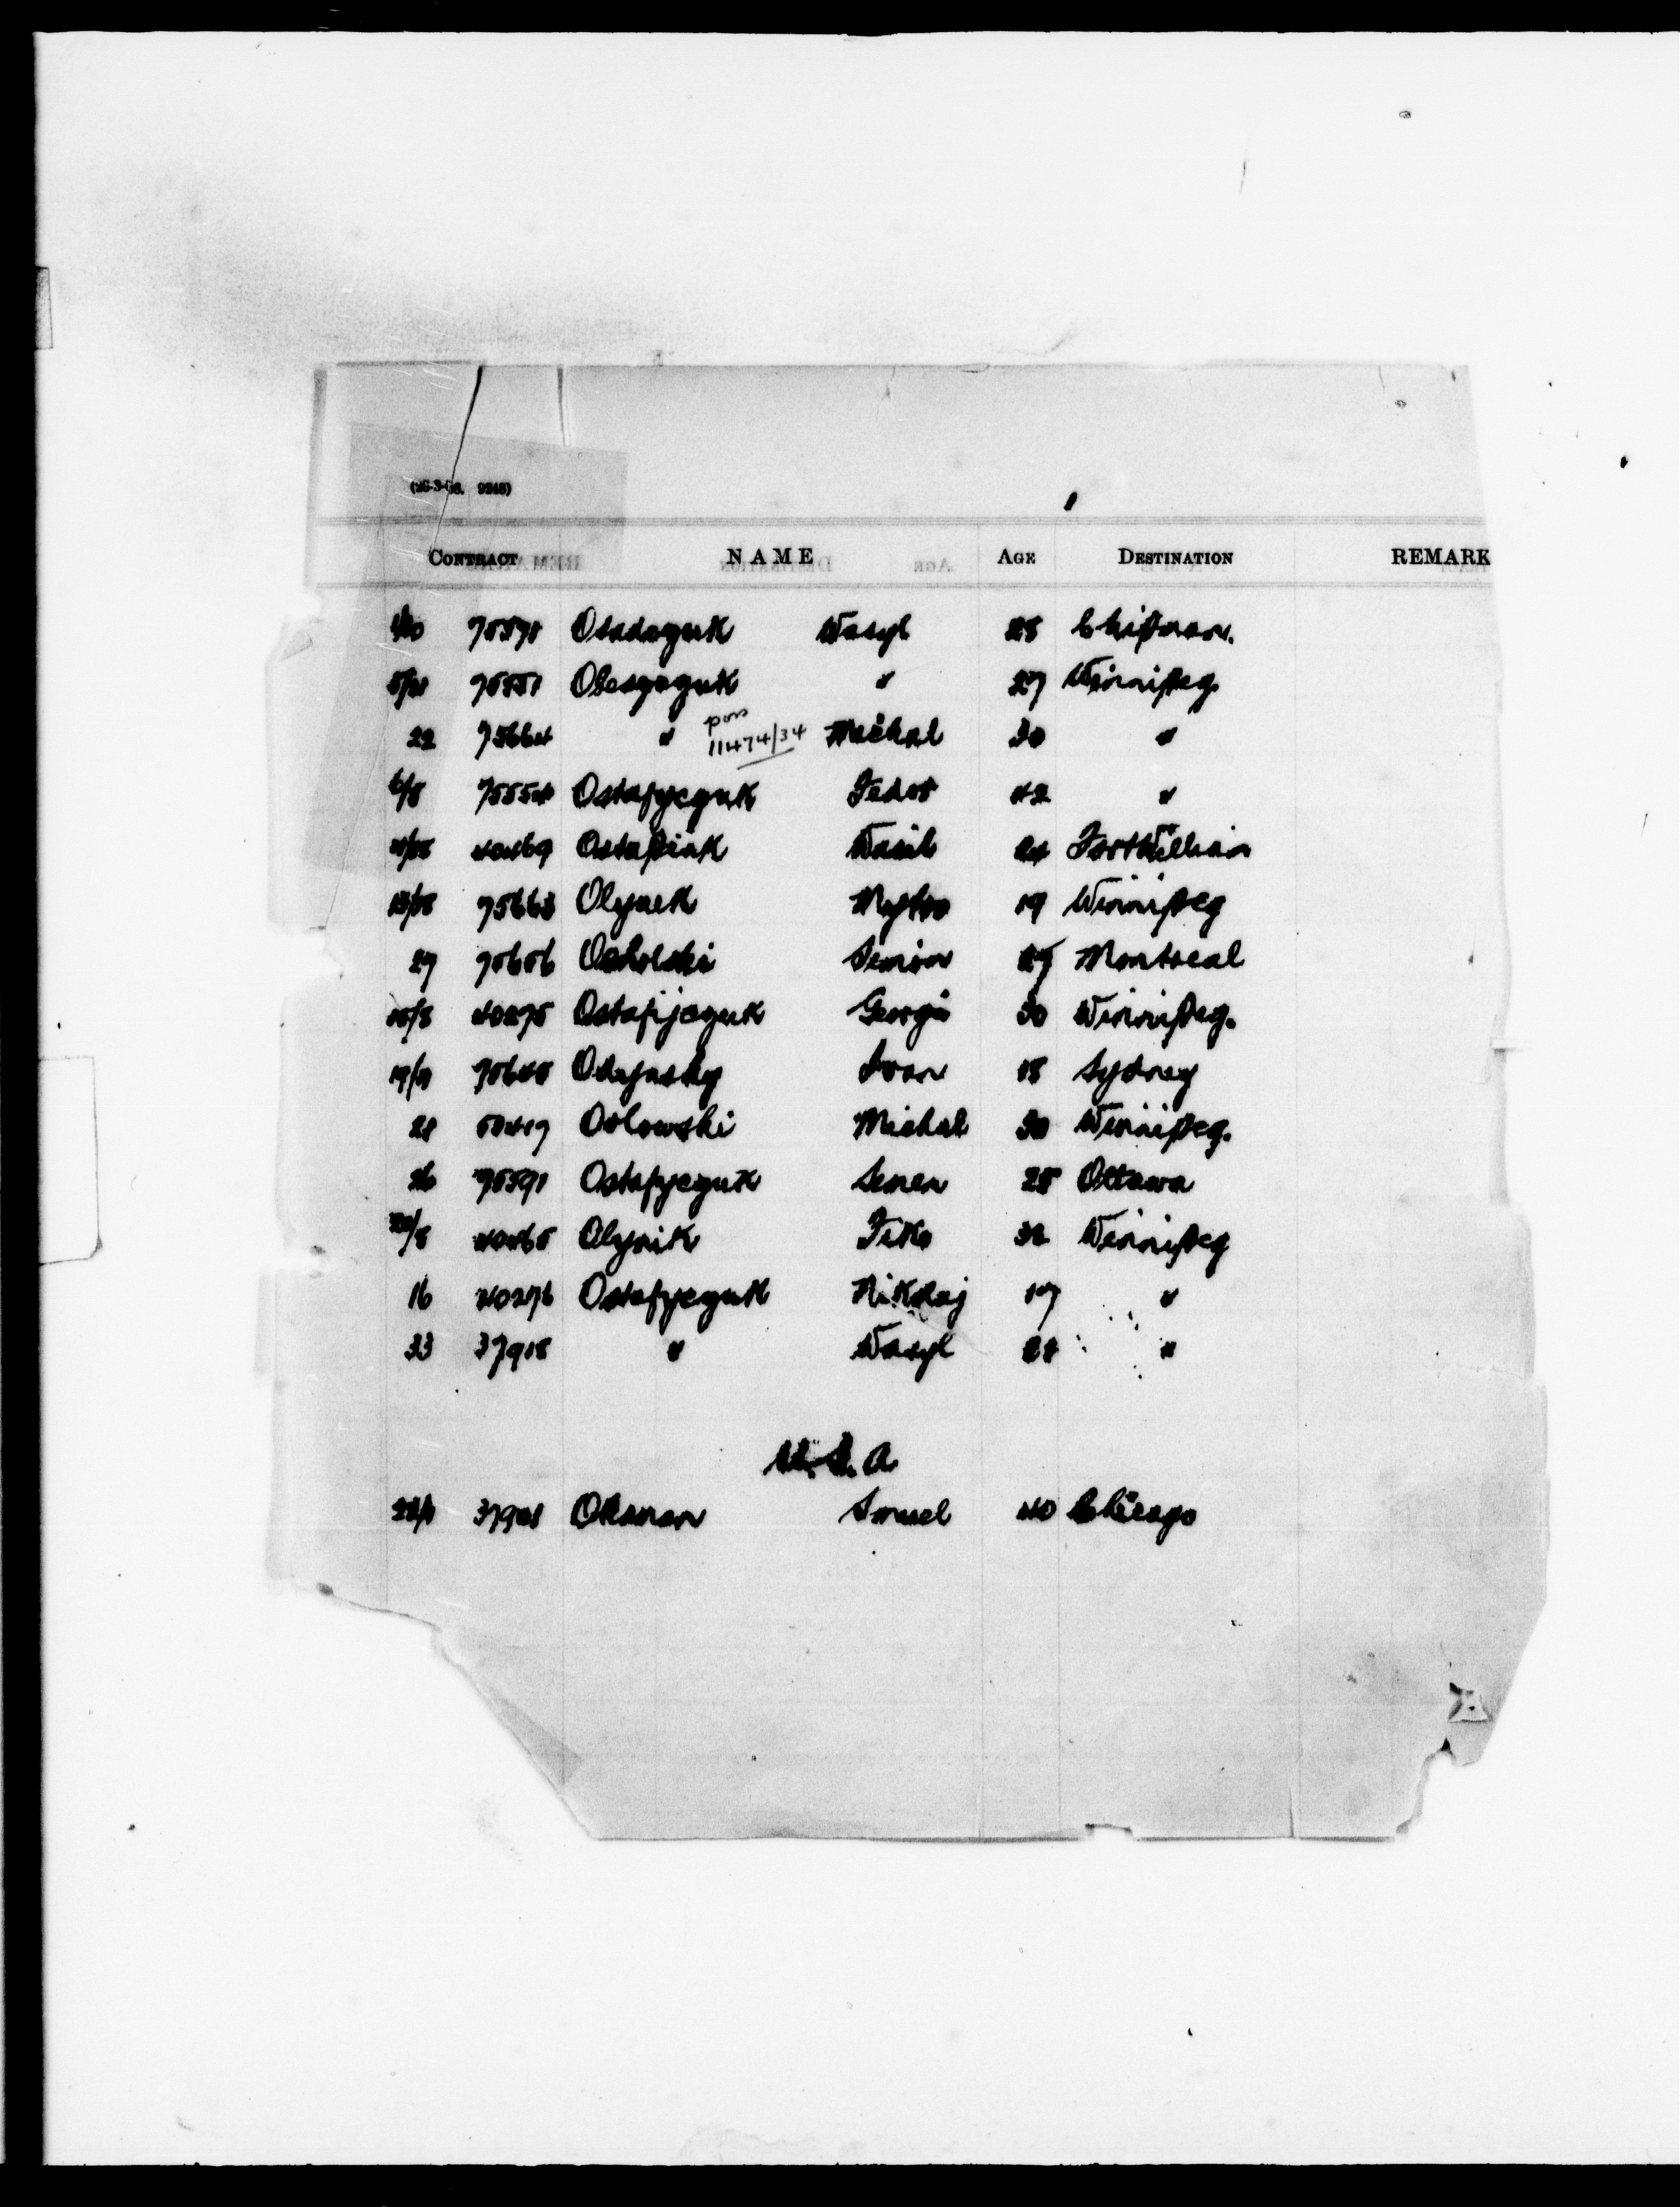 (26-3-08. 9248)
CONTRACT NAME AGE DESTINATION REMARK
75571 Osadczuk Wasyl 28 Chipman.
75551 " 27 Winnipeg.
pors
22 75664 " 11474/34 Michal 30 "
75554 Ostafyczuk Fedor 42 "
40469 Ostafiak Wasil 24 Fort William
75663 Olynek Mytro 19 Winnipeg
27 75656 Osholski Semion 27 Montreal
40275 Ostafijczuk Georgi 30 Winnipeg.
75645 Ivan 18 Sydney
28 50417 Orlowski Michal 30 Winnipeg.
26 75591 Ostafyczuk Semen 28 Ottawa
40465 Olynik Feko 32 Winnipeg
16 40276 Ostafyczuk Nikolaj 17 "
33 37918 " Wasyl 28 "
U.S.A
Oksman Smuel 40 Chicago